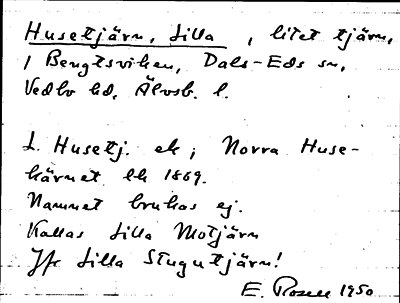 Husetjärn, Lilla, litet tjärn,
i Bengtsviken, Dals-Eds sn,
Vedbo hd, Älvsb. l.
L. Husetj. ek; Norra Huse-
kärnet hk 1869.
Namnet brukas ej.
Kallas Lilla Motjärn
Jfr Lilla Stugutjärn!
E. Rosell 1950